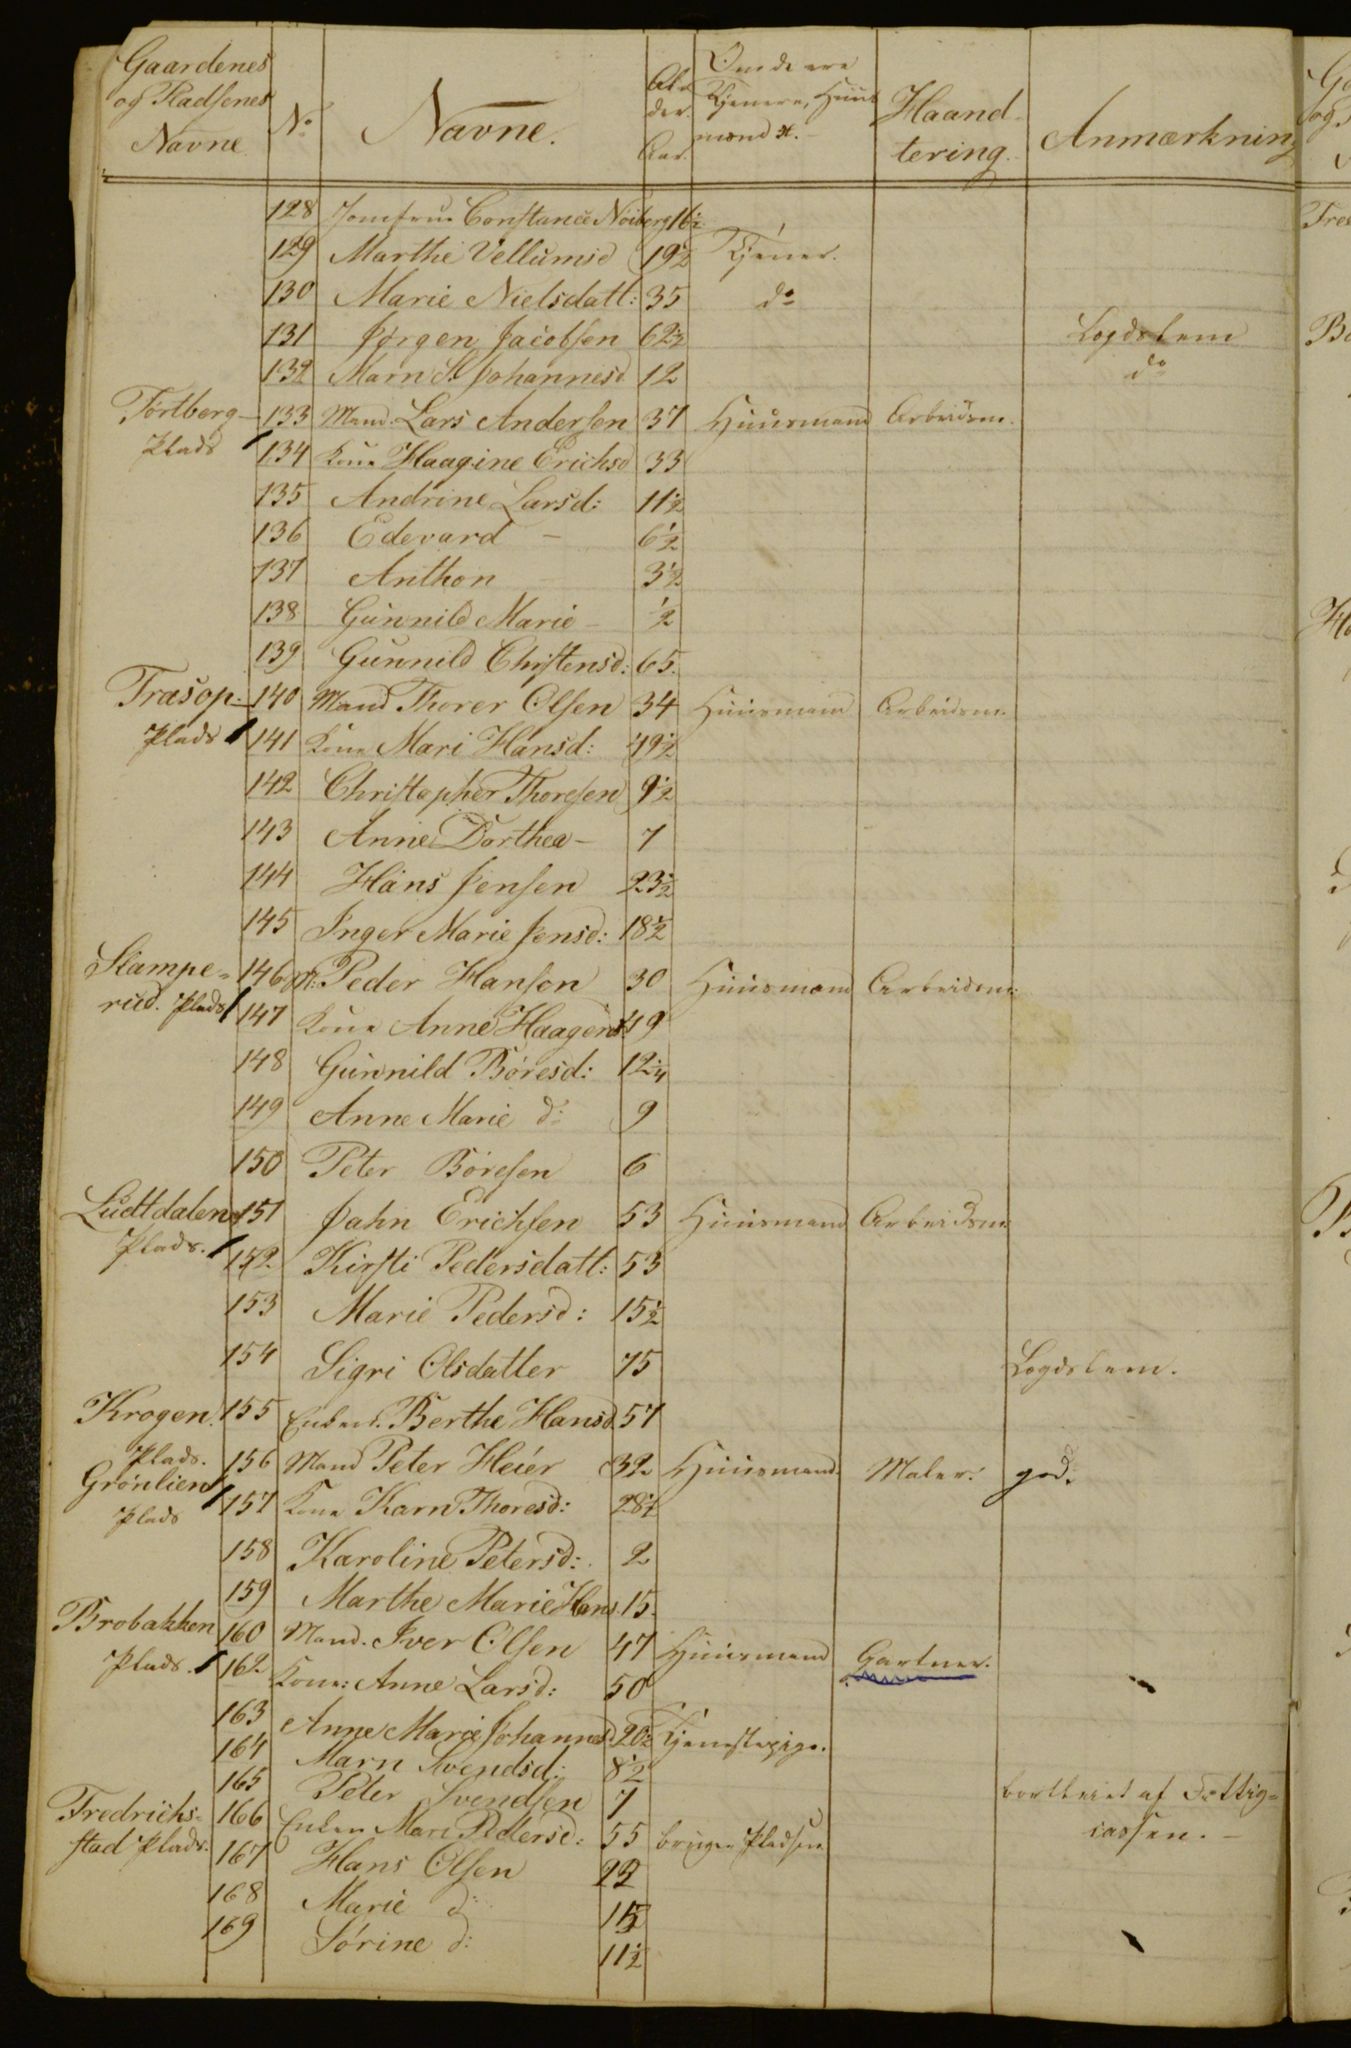 Gaardenes og Pladsenes Navne | No | Navne. | Alder. Aar. | Om de ere Tjenere, Huusmænd &. | Haandtering. | Anmærkning
128 Jomfrue Constance 16½
129 Marthe Vellumsd 19½ Tjener.
130 Marie Nielsdatt: 35 do
131 Jørgen Jacobsen 62½ Logdslem
132 Marn Johannesd 12 do
Tortberg 133 Mand. Lars Andersen 37 Huusmand Arbeidsm.
Plads 134 Kone Haagine Erichsd 33
135 Andrine Larsd: 11½
136 Edevard – 6½
137 Anthon 3½
138 Gunnild Marie – ½
139 Gunnild Chistensd: 65.
Træsop- 140 Mand Thorer Olsen 34 Huusmand Arbeidsm.
Plads 141 Kone Mari Hansd: 49½
142 Christopher Thoresen 9½
143 Anne Dorthea – 7
144 Hans Jensen 23½
145 Inger Marie Jensd: 18½
Stampe= 146 M: Peder Hanson 30 Huusmand Arbeidsm:
rud. Plads 147 Kone Anne Haagensd 49
148 Gunnild Børesd: 12¼
149 Anne Marie do 9
150 Peter Børesen 6
Ludtdalen 151 Jahn Erichsen 53 Huusmand Arbeidsm
Plads. 152 Kirsti Pedersdatt: 53
153 Marie Pedersd: 15½
154 Sigri Olsdatter 75 Logdslem.
Krogen. 155 Enken. Berthe Hansd. 57
Plads.
Grønlien 156 Mand Peter Heier 32 Huusmand. Maler. god.
Plads 157 Kone Karn Thoresd: 28½
158 Karoline Petersd: 2
159 Marthe Marie Hans. 15.
Brobakken 160 Mand. Iver Olsen 47 Huusmand Gartner.
Plads. 162 Kone: Anne Larsd: 50
163 Anne Marie Johannesd. 20½ Tjenestepige.
164 Marn Svendsd: 8½
165 Peter Svendsen 7 bortleiet af Fattig=
Fredrichs= 166 Enken Mari Pedersd: 55 bruger Pladsen cassen. –
stad Plads. 167 Hans Olsen
168 Marie d:
169 Sørine d: 11½